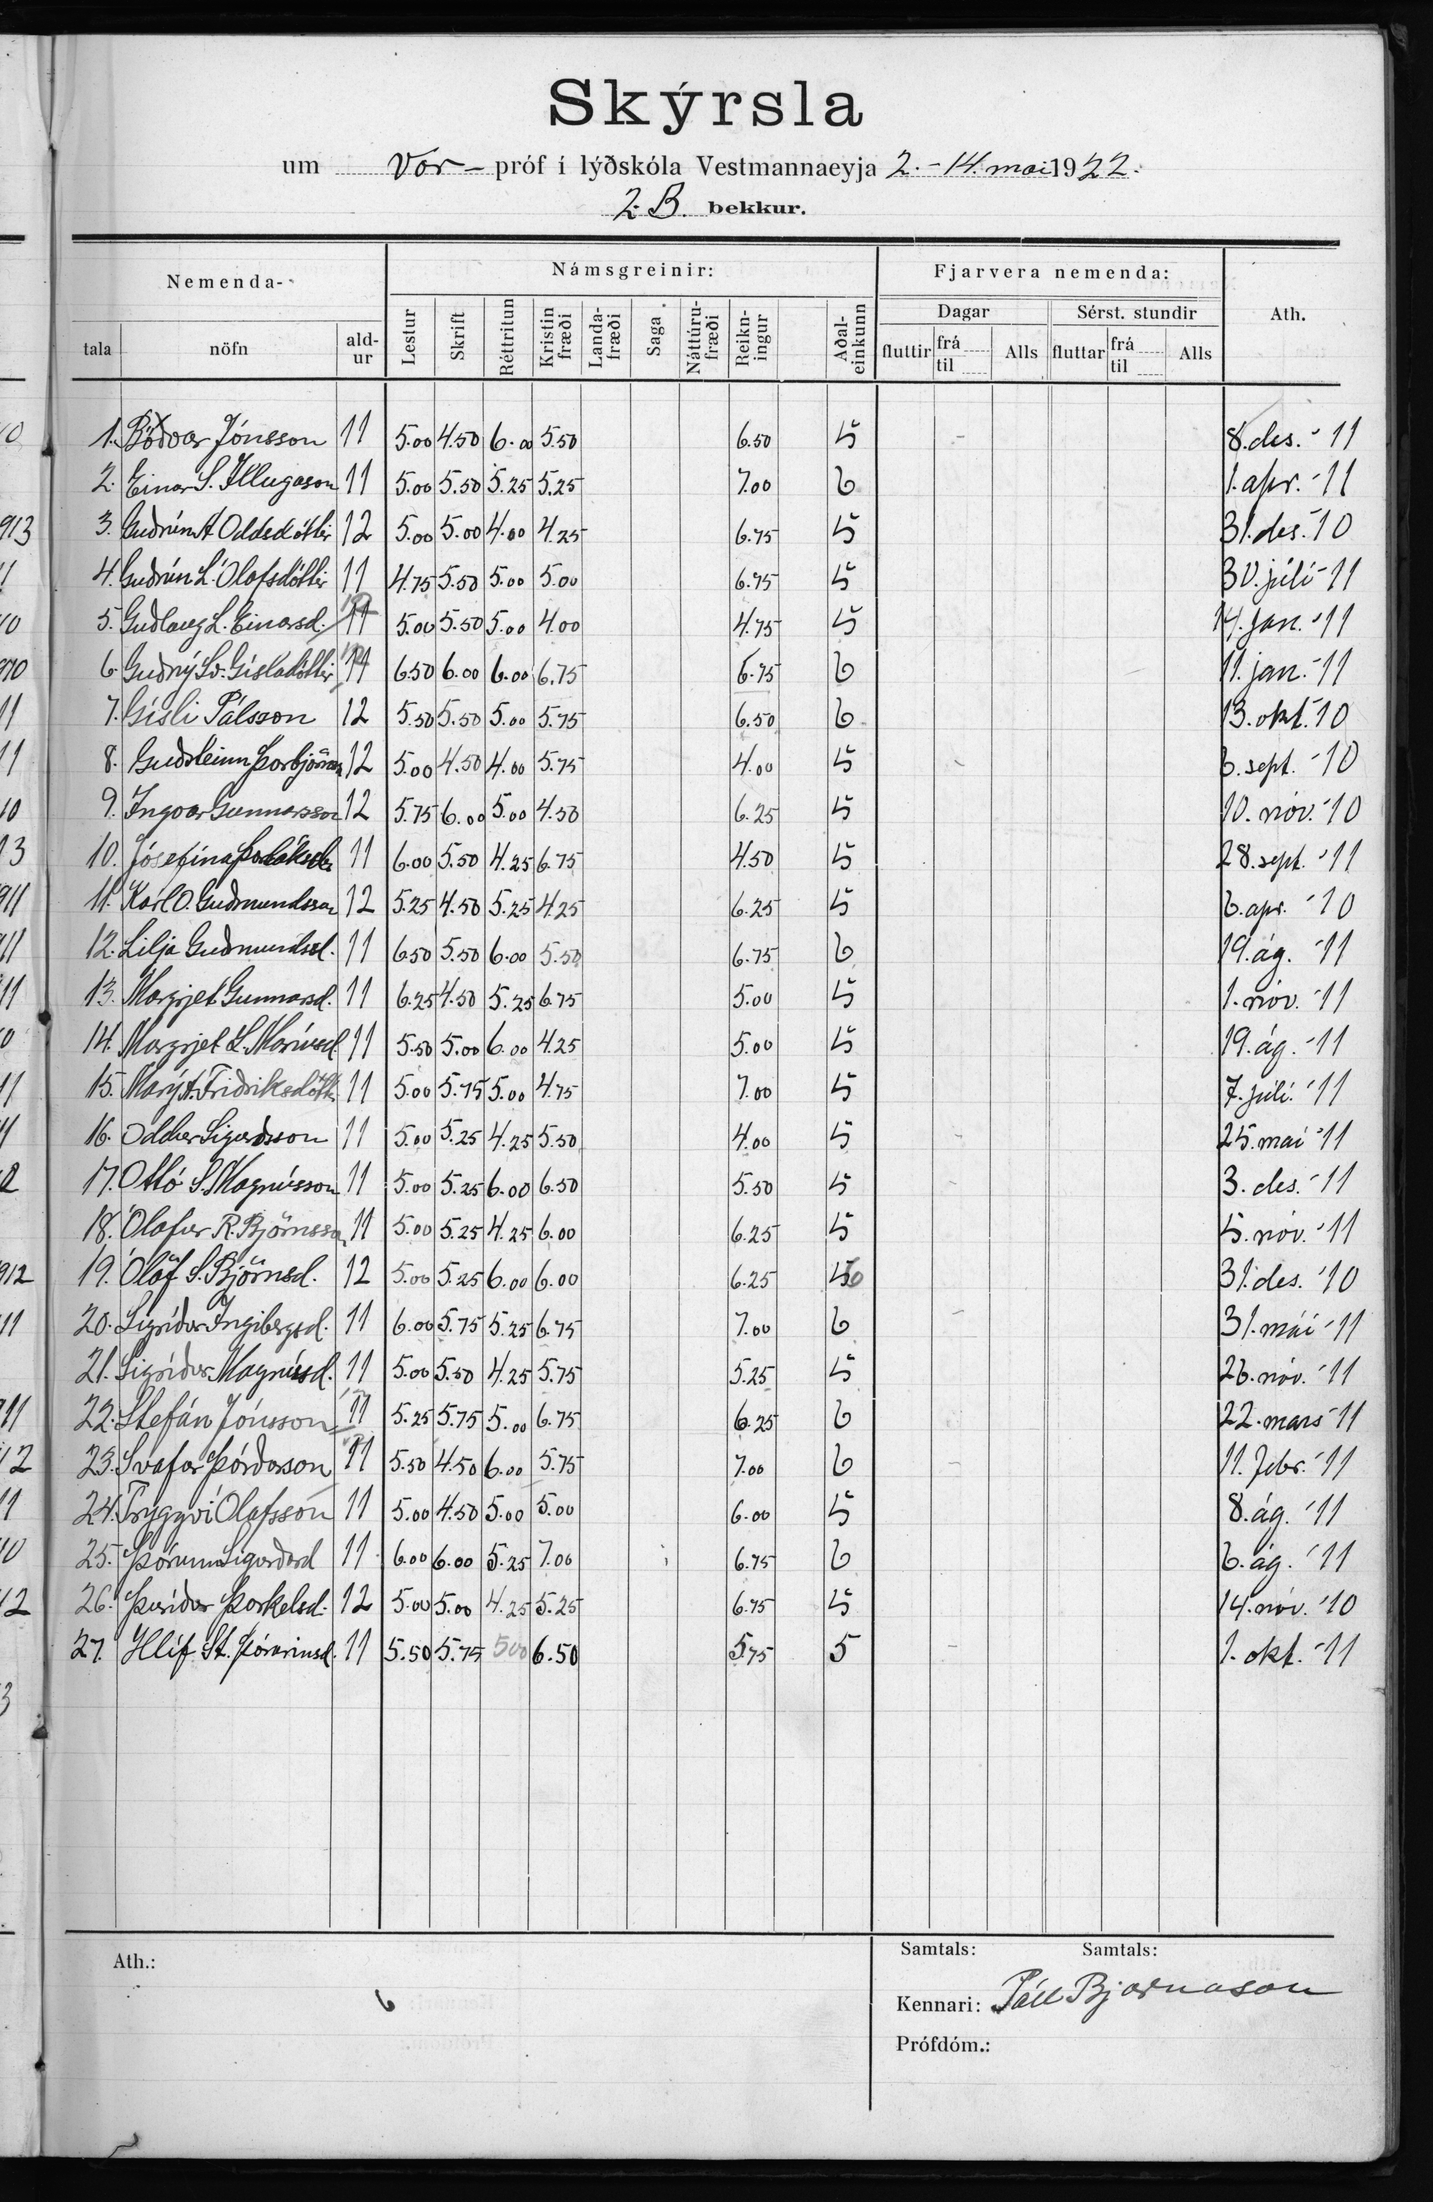 Skýrsla
um Vor- próf í lýðskóla Vestmannaeyja 2.-14. mai 1922.
2. B. bekkur.
Nemenda- Námsgreinir: Fjarvera nemenda: Ath.
tala nöfn ald-ur Lestur Skrift Réttritun Kristin fræði Landa-fræði Saga Náttúru-fræði Reikn-ingur Aðal-einkunn Dagar Sérst. stundir
fluttir frá til Alls fluttar frá til Alls
1. Böðvar Jónsson 11 5.00 4.50 6.00 5.50 6.50 5 8. des. '11
2. Einar S. Illugason 11 5.00 5.50 5.25 5.25 7.00 6 1. apr. '11
3. Guðrún A Oddsdóttir 12 5.00 5.00 4.00 4.25 6.75 5 31. des. '10
4. Guðrún L. Ólafsdóttir 11 4.75 5.50 5.00 5.00 6.75 5 30. júlí '11
5. Guðlaug L. Einarsd. 11 5.00 5.50 5.00 4.00 4.75 5 14. jan. '11
6. Guðný Sv. Gísladóttir 11 6.50 6.00 6.00 6.75 6.75 6 11. jan. '11
7. Gísli Pálsson 12 5.50 5.50 5.00 5.75 6.50 6 13. okt. '10
8. Guðsteinn Þorbjörnss 12 5.00 4.50 4.00 5.75 4.00 5 6. sept. '10
9. Ingvar Gunnarsson 12 5.75 6.00 5.00 4.50 6.25 5 10. nóv. '10
10. Jósefína Þorláksd. 11 6.00 5.50 4.25 6.75 4.50 5 28. sept. '11
11. Karl O. Guðmundsson 12 5.25 4.50 5.25 4.25 6.25 5 6. apr. '10
12. Lilja Guðmundsd. 11 6.50 5.50 6.00 5.50 6.75 6 19. ág. '11
13. Margrjet Gunnarsd. 11 6.25 4.50 5.25 6.75 5.00 5 1. nóv. '11
14. Margrjet L. Maríusd. 11 5.50 5.00 6.00 4.25 5.00 5 19. ág. '11
15. Marý A. Friðriksdótt. 11 5.00 5.75 5.00 4.75 7.00 5 7. júlí. '11
16. Oddur Sigurðsson 11 5.00 5.25 4.25 5.50 4.00 5 25. mai '11
17. Ottó S. Magnússon 11 5.00 5.25 6.00 6.50 5.50 5 3. des. '11
18. Ólafur R. Björnsson 11 5.00 5.25 4.25 6.00 6.25 5 5. nóv. '11
19. Ólöf S. Björnsd. 12 5.00 5.25 6.00 6.00 6.25 31. des. '10
20. Sigríður Ingibergsd. 11 6.00 5.75 5.25 6.75 7.00 6 31. mái '11
21. Sigríður Magnúsd. 11 5.00 5.50 4.25 5.75 5.25 5 26. nóv. '11
22. Stefán Jónsson 11 5.25 5.75 5.00 6.75 6.25 6 22. mars '11
23. Svafar Þórðarson 11 5.50 4.50 6.00 5.75 7.00 6 11. febr. '11
24. Tryggvi Ólafsson 11 5.00 4.50 5.00 5.00 6.00 5 8. ág. '11
25. Þórunn Sigurðard 11 6.00 6.00 5.25 7.00 6.75 6 6. ág. '11
26. Þuríður Þorkelsd. 12 5.00 5.00 4.25 5.25 6.75 5 14. nóv. '10
27. Hlíf St. Þórarinsd. 11 5.50 5.75 500 6.50 5.75 5 1. okt. '11
Ath.: Samtals: Samtals:
6
Kennari: Páll Bjarnason
Prófdóm.: